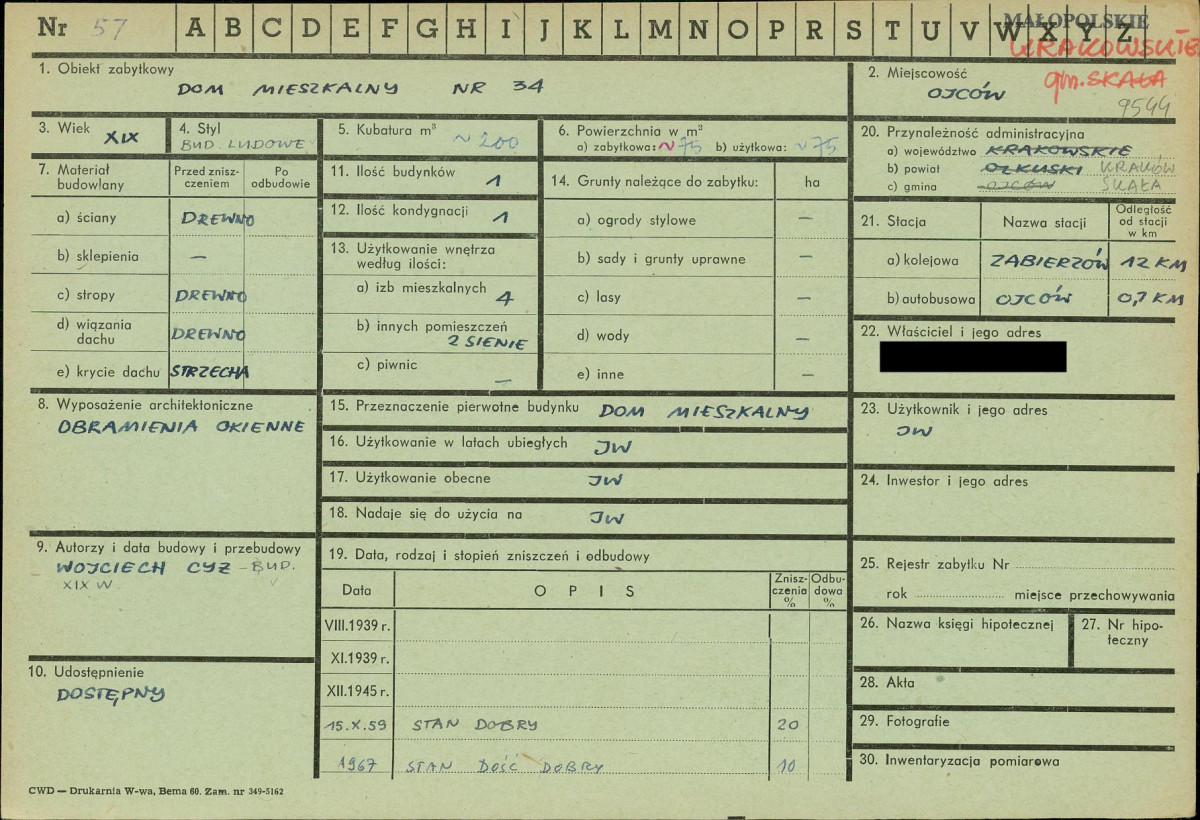 Nr 57 A B C D E F G H I J K L M N O P R S T U V W X Y Z
MAŁOPOLSKIE
KRAKOWSKIE
gm. SKAŁA
9544
1. Obiekt zabytkowy
DOM MIESZKALNY NR 34
2. Miejscowość
OJCÓW
3. Wiek
XIX
4. Styl
BUD. LUDOWE
5. Kubatura m³
~200
6. Powierzchnia w m²
a) zabytkowa: ~75 b) użytkowa: ~75
7. Materiał budowlany
Przed zniszczeniem
Po odbudowie
a) ściany DREWNO
b) sklepienia —
c) stropy DREWNO
d) wiązania dachu DREWNO
e) krycie dachu STRZECHA
8. Wyposażenie architektoniczne
OBRAMIENIA OKIENNE
9. Autorzy i data budowy i przebudowy
WOJCIECH CYZ – BUD.
XIX W
10. Udostępnienie
DOSTĘPNY
11. Ilość budynków 1
12. Ilość kondygnacji 1
13. Użytkowanie wnętrza
według ilości:
a) izb mieszkalnych 4
b) innych pomieszczeń
2 SIENIE
c) piwnic —
14. Grunty należące do zabytku: ha
a) ogrody stylowe —
b) sady i grunty uprawne —
c) lasy —
d) wody —
e) inne —
15. Przeznaczenie pierwotne budynku DOM MIESZKALNY
16. Użytkowanie w latach ubiegłych JW
17. Użytkowanie obecne JW
18. Nadaje się do użycia na JW
19. Data, rodzaj i stopień zniszczeń i odbudowy
Data OPIS Zniszczenia % Odbudowa %
VIII.1939 r.
XI.1939 r.
XII.1945 r.
15.X.59 STAN DOBRY 20
1967 STAN DOŚĆ DOBRY 10
20. Przynależność administracyjna
a) województwo KRAKOWSKIE
b) powiat OLKUSKI KRAKÓW
c) gmina OJCÓW SKAŁA
21. Stacja Nazwa stacji Odległość od stacji w km
a) kolejowa ZABIERZÓW 12 KM
b) autobusowa OJCÓW 0,7 KM
22. Właściciel i jego adres
23. Użytkownik i jego adres
JW
24. Inwestor i jego adres
25. Rejestr zabytku Nr
rok miejsce przechowywania
26. Nazwa księgi hipotecznej
27. Nr hipoteczny
28. Akta
29. Fotografie
30. Inwentaryzacja pomiarowa
CWD — Drukarnia W-wa, Bema 60. Zam. nr 349-5162